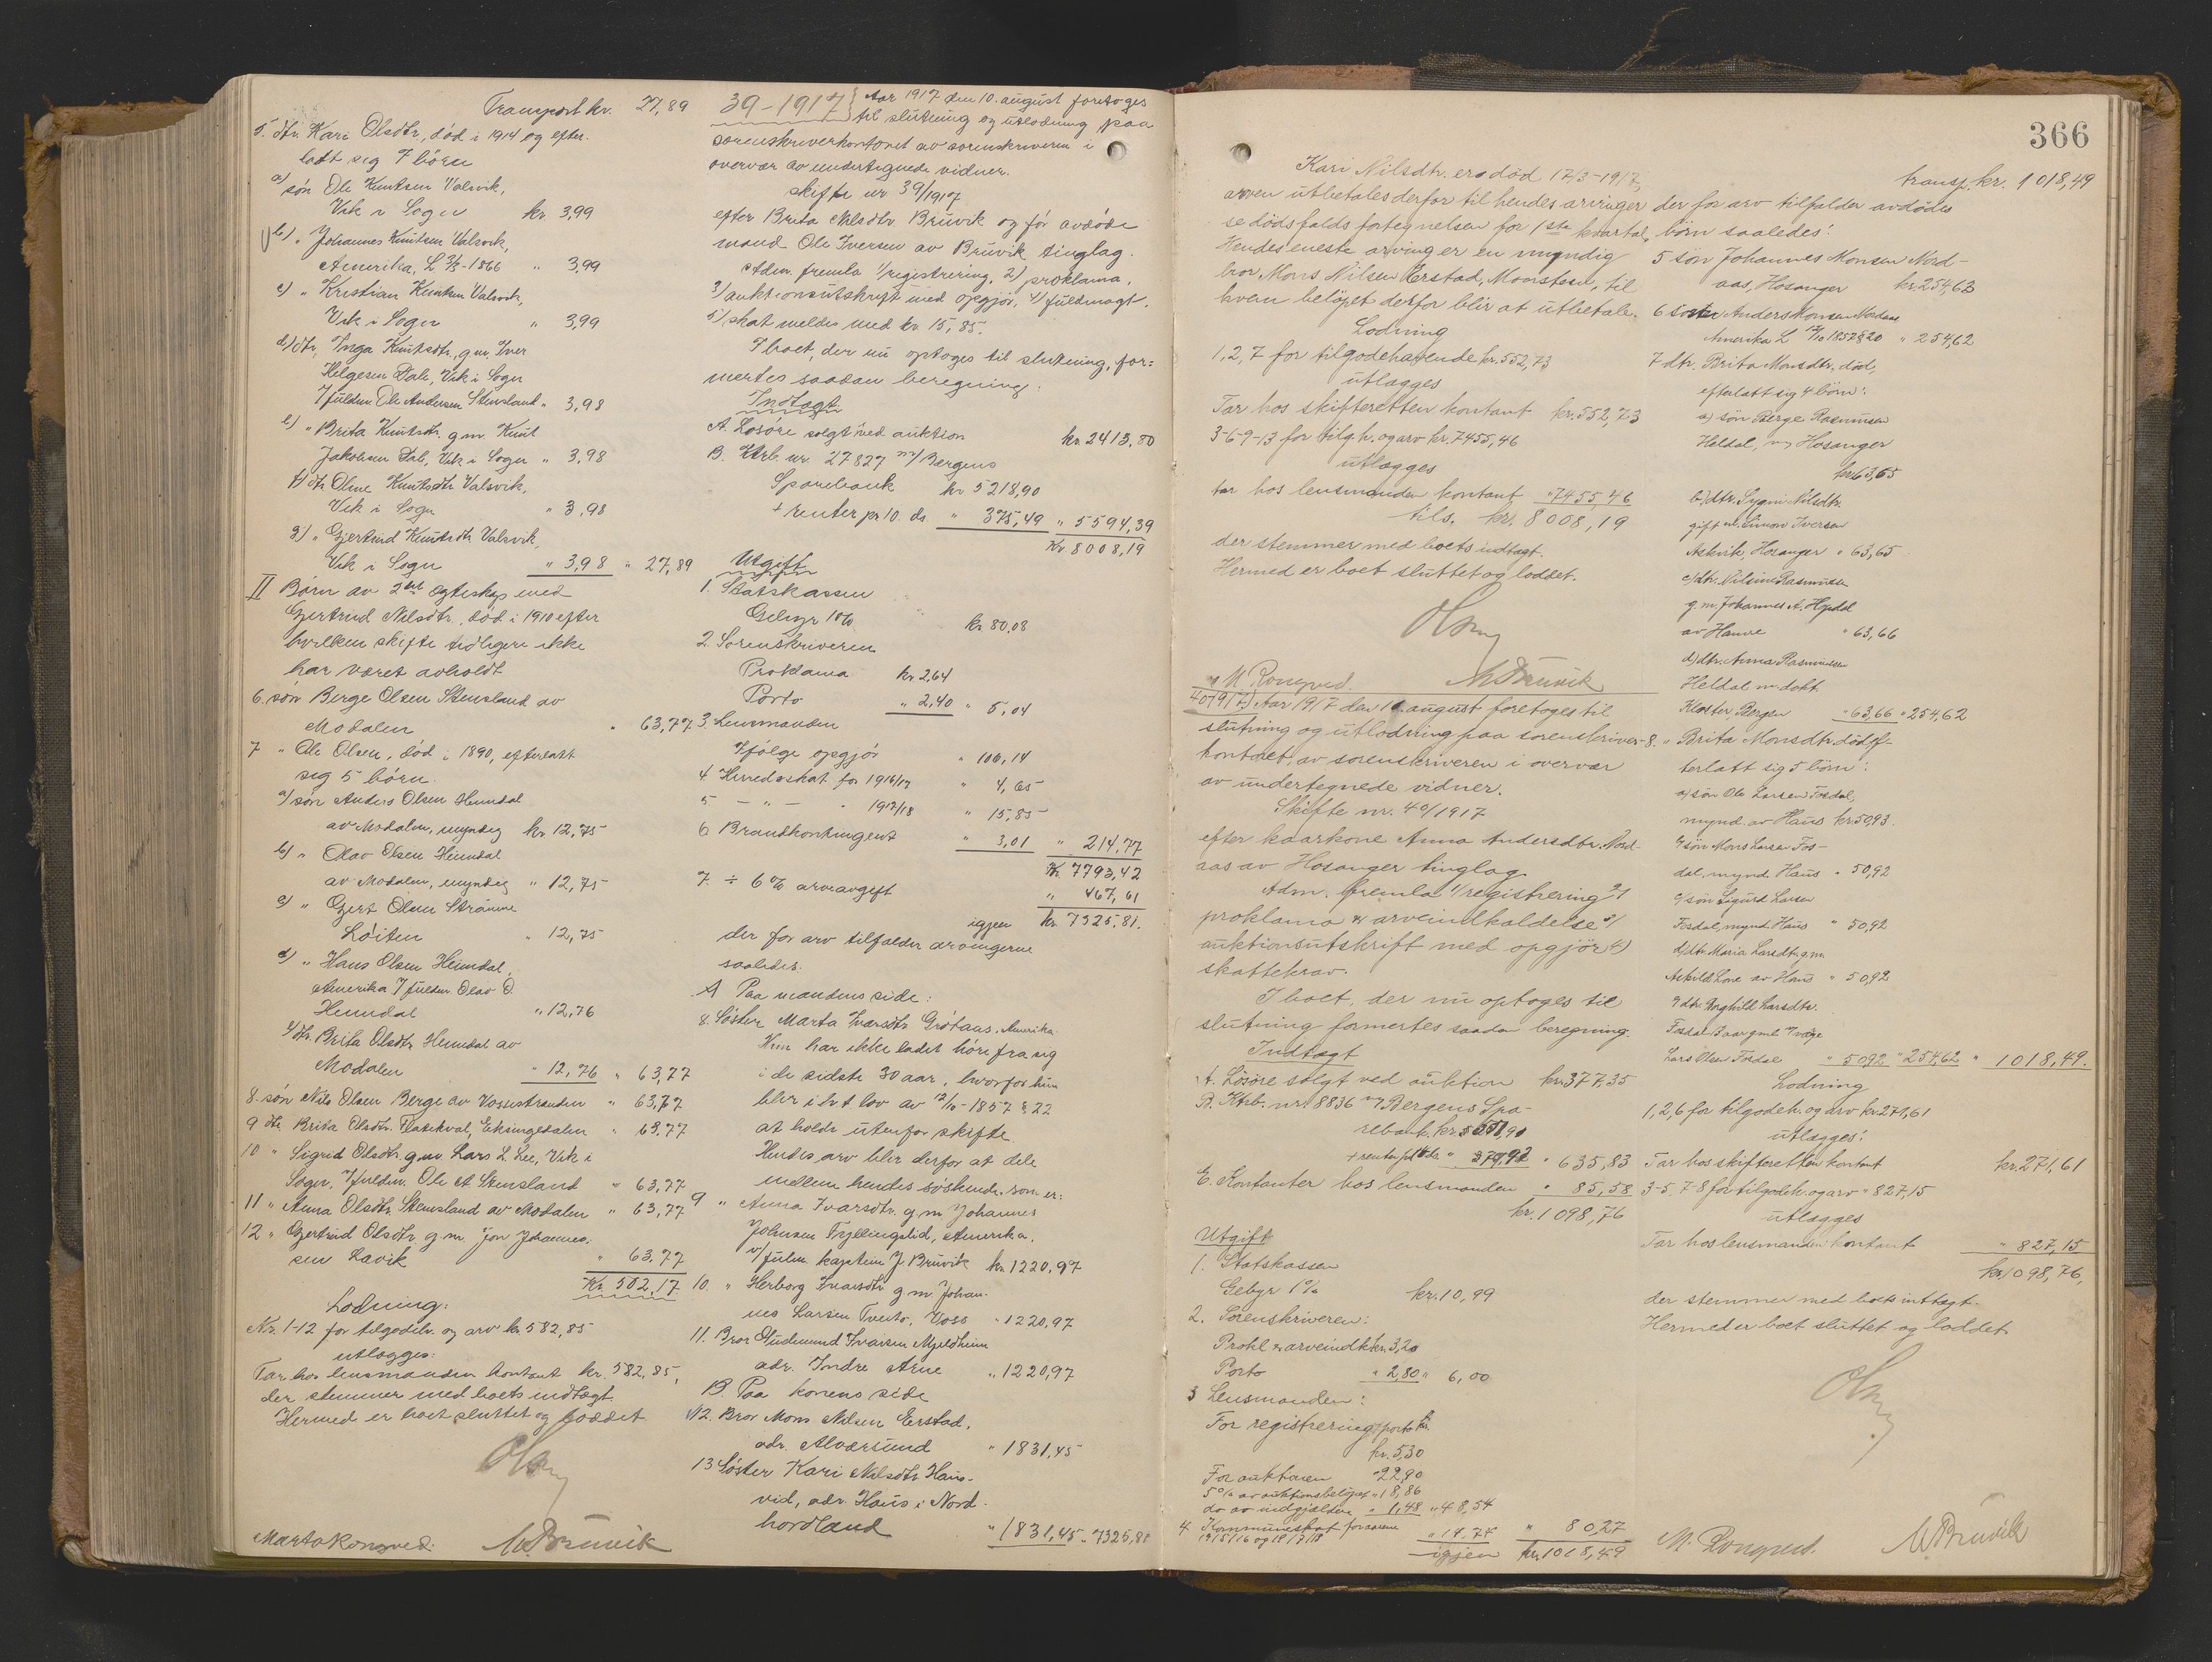 Transport kr. 27,89
5. dtr. Kari Olsdtr, død i 1914 og efter-
latt sig 7 börn
a) sön Ole Knutsen Valsvik,
Vik i Sogn kr 3,99
b) „ Johannes Knutsen Valsvik,
Amerika, L 3/3-1866 „ 3,99
c) „ Kristian Knutsen Valsvik,
Vik i Sogn „ 3,99
d) dtr, Inga Knutsdtr, g.m. Iver
Helgesen Dale, Vik i Sogn
V fuldm. Ole Andersen Stensland „ 3,98
e) „ Brita Knutsdtr. g.m. Knut
Jakobsen Dale, Vik i Sogn „ 3,98
f) dtr Oline Knutsdtr Valsvik,
Vik i Sogn „ 3,98
g) „ Gjertrud Knutsdtr Valsvik,
Vik i Sogn „ 3,98 „ 27,89
II Börn av 2det egteskap med
Gjertrud Nilsdtr., död i 1910 efter
hvilken skifte tidligere ikke
har været avholdt
6. sön Berge Olsen Stensland av
Modalen „ 63,77
7 „ Ole Olsen, död i 1890, efterlatt
sig 5 börn.
a) sön Anders Olsen Heimdal
av Modalen, myndig kr 12,75
b) „ Olav Olsen Heimdal
av Modalen, myndig „ 12,75
c) „ Gjert Olsen Straume
Löiten „ 12,75
d) „ Hans Olsen Heimdal,
Amerika V fuldm. Olav O.
Heimdal „ 12,76
e) dtr. Brita Olsdtr Heimdal av
Modalen „ 12,76 „ 63,77
8. sön Nils Olsen Berge av Vossestranden „ 63,77
9 dtr Brita Olsdtr. Flatekval, Eksingedalen „ 63,77
10 „ Sigrid Olsdtr. g.m. Lars L. Lee, Vik i
Sogn, V fuldm. Ole A Stensland „ 63,77
11 „ Anna Olsdtr Stensland av Modalen „ 63,77
12 „ Gjertrud Olsdtr. g.m. Jon Johannes-
sen Lavik „ 63,77
Kr. 502,17
Lodning:
Nr. 1-12 for tilgodeh. og arv kr 582,85
utlægges:
Tar hos lensmanden kontant kr. 582,85,
der stemmer med boets indtægt.
Hermed er boet sluttet og loddet
Marta Rongved. M. Bruvik
39-1917 } Aar 1917 den 10. august foretoges
til slutning og utlodning paa
sorenskriverkontoret av sorenskriveren i
overvær av undertegnede vidner.
skifte nr 39/1917
efter Brita Nilsdtr Bruvik og för avdöde
mand Ole Iversen av Bruvik tinglag.
Adm. fremla 1/ registrering, 2) proklama,
3) auktionsutskrift med opgjör, 4) fuldmagt,
5) skat meldes med kr. 15,85.
I boet, der nu optoges til slutning, for-
mertes saadan beregning:
Indtægt
A. Lösöre solgt ved auktion kr. 2413,80
B. Ktrb. nr. 27827 m/ Bergens
Sparebank kr 5218,90
+ renter pr 10. ds. „ 375,49 „ 5594,39
Kr 8008,19
Utgift
1. Statskassen
Gebyr 1% kr 80,08
2. Sorenskriveren
Proklama kr 2,64
Porto „ 2,40 „ 5,04
3. Lensmanden
Ifölge opgjör „ 106,14
4 Herredsskat for 1916/17 „ 4,65
5 — „ — „ 1917/18 „ 15,85
6. Brandkontingent „ 3,01 „ 214,77
Kr. 7793,42
7. ÷ 6% arveavgift „ 467,61
igjen kr. 7325,81.
der for arv tilfalder arvingerne
saaledes:
A Paa mandens side:
8. Söster Marta Ivarsdtr Grötaus, Amerika.
Hun har ikke ladet höre fra sig
i de sidste 30 aar, hvorfor hun
blir i h t lov av 12/10-1857 § 22
at holde utenfor skifte.
Hendes arv blir derfor at dele
mellem hendes söskende som er:
9 „ Anna Ivarsdtr. g.m Johannes
Johnsen Fyllingslid, Amerika.
v/ fuldm. kaptein J. Bruvik kr. 1220,97
10. „ Herborg Ivarsdtr g m Johan-
nes Larsen Tveito, Voss „ 1220,97
11. Bror Gudmund Ivarsen Mjeldheim
adr. Indre Arne „ 1220,97
B. Paa konens side
12. Bror Mons Nilsen Eerstad,
adr. Alversund „ 1831,45
13 Söster Kari Nilsdtr Haus-
vid, adr. Haus i Nord-
hordland „ 1831,45 „ 7325,81
366
Kari Nilsdtr. er död 17/3-1917,
arven utbetales derfor til hendes arvinger
se dödsfalds fortegnelsen for 1ste kvartal.
Hendes eneste arvinger er en myndig
bror Mons Nilsen Eerstad, Moonsteen, til
hvem belöpet derfor blir at utbetale.
Lodning
1, 2, 7 for tilgodehavende kr. 552,73
utlægges
Tar hos skifteretten kontant kr. 552,73
3-6-9-13 for tilgh. og arv kr. 7455,46
utlægges
tar hos lensmanden kontant „ 7455,46
tils. kr. 8008,19
der stemmer med boets indtægt.
Hermed er boet sluttet og loddet.
M Rongved. M Bruvik
40/1917) Aar 1917 den 10. august foretoges til
slutning og utlodning paa sorenskriver-
kontoret, av sorenskriveren i overvær
av undertegnede vidner.
Skifte nr. 40/1917
efter kaarkone Anna Andersdtr. Nord-
aas av Hosanger tinglag.
Adm. fremla 1/ registrering 2/
proklama & arveindkaldelse 3/
auktionsutskrift med opgjör 4)
skattekrav.
I boet, der nu optoges til
slutning formertes saadan beregning.
Indtægt
A. Lösöre solgt ved auktion kr. 377,35
B. Ktrb. nr. 8836 m/ Bergens Spa-
„ 635,83
E. Kontanter hos lensmanden „ 85,58
kr. 1098,76
Utgift
1. Statskassen
Gebyr 1% kr. 10,99
2. Sorenskriveren:
Prokl & arveindk kr. 3,20
Porto „ 2,80 „ 6,00
3 Lensmanden:
For registrering
kr. 5,30
For auktionen 22,90
5% av auktionsbelöpet „ 18,86
do av indgjælden „ 1,48 „ 48,54
4. Kommuneskat for aarene
„ 14,74 „ 80,27
igjen kr. 1018,49
transp. kr. 1018,49
der for arv tilfalder avdödes
börn saaledes:
5 sön Johannes Monsen Nord-
aas, Hosanger kr. 254,63
6 Anders Monsen Nordaas
Amerika L 12/10 1857 § 20 „ 254,62
7 dtr. Brita Monsdtr. död,
efterlatt sig 4 börn:
a) sön Berge Rasmussen
Heldal, Hosanger
kr. 63,65
b) dtr. Nilsdtr.
gift m. Simon Iversen
Askvik, Hosanger „ 63,65
c) dtr. Nilsine Rasmussen
g. m. Johannes A. Hopdal
av Hamre „ 63,66
d) dtr. Anna Rasmussen
Heldal
Kloster, Bergen „ 63,66 „ 254,62
8. „ Brita Monsdtr. död, ef-
terlatt sig 5 börn:
a) sön Ole Larsen Fosdal,
mynd. av Haus kr. 50,93
b) sön Mons Larsen Fos-
dal, mynd. Haus „ 50,92
c) sön Sigurd Larsen
Fosdal, mynd. Haus „ 50,92
d) dtr. Maria Larsdtr. g.m.
av Haus „ 50,92
e) dtr. Borghild Larsdtr.
Fosdal
Lars Olsen Fosdal „ 50,92 „ 254,62 „ 1018,49.
Lodning
1, 2, 6 for tilgodeh. og arv kr. 271,61
utlægges:
Tar hos skifteretten kontant kr. 271,61
3-5, 7-8 for tilgodeh. og arv „ 827,15
utlægges
Tar hos lensmanden kontant „ 827,15
kr. 1098,76,
der stemmer med boets inttægt.
Hermed er boet sluttet og loddet
M. Rongved. M Bruvik